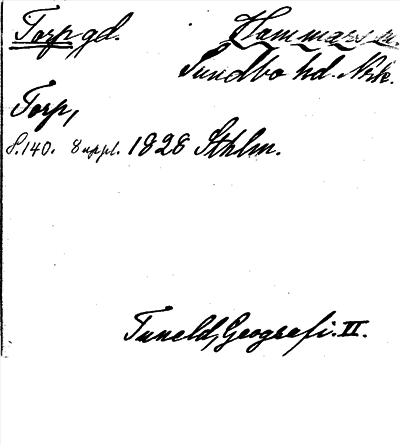 Torp, gd. Hammars sn.
Sundbo hd. Nrk.
Torp,
S. 140. Suppl. 1828 Sthlm.
Tuneld, Geografi. II.